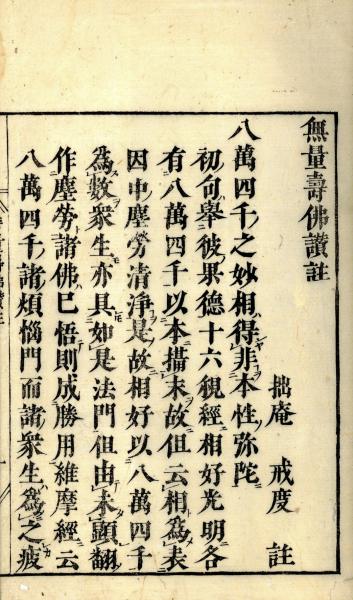 無量壽佛讚註
拙庵 戒度 註
八萬四千之妙相得非本性弥陀
初句擧彼果德十六觀經相好光明各
有八萬四千以本攝末故但云相爲表
因中塵勞清淨是故相好以八萬四千
為數衆生亦具如是法門但由未顯翻
作塵勞諸佛已悟則成勝用維摩經云
八萬四千諸煩惱門而諸衆生爲之疲